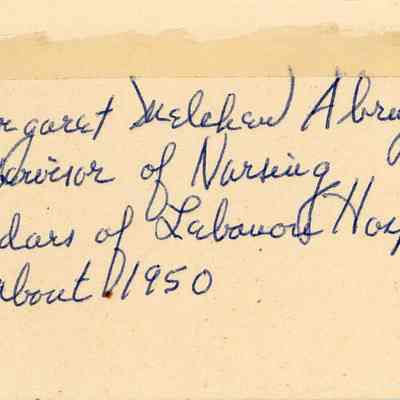 rgaret Melehed Abru
ervisor of Nursing
dars of Lebanon Hosp
about 1950